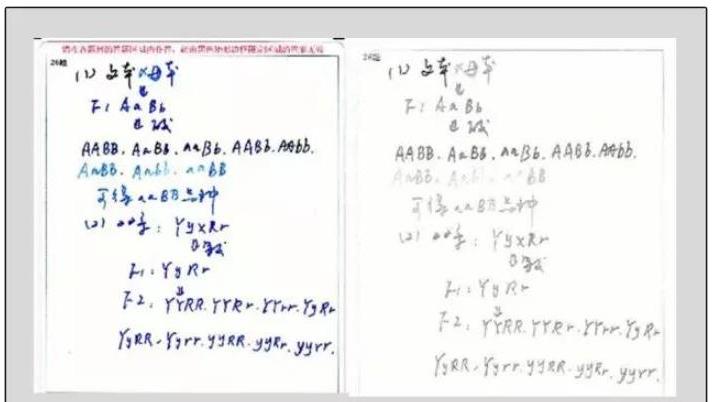 请在各题目的答题区域内作答，超出黑色矩形边框限定区域的答案无效
26题
(1) 父本×母本
↓
F1 AaBb
↓
AABB. AaBb. aaBb. AABb. AAbb.
AaBB. Aabb. aaBB
可得 aaBB
(2) : YyxRr
↓
F1: YyRr
↓
F2: YYRR. YYRr. YYrr. YyRr
YyRR. Yyrr. yyRR. yyRr. yyrr.
26题
(1) 父本×母本
↓
F1 AaBb
↓
AABB. AaBb. aaBb. AABb. AAbb.
AaBB. Aabb. aaBB
可得 aaBB
(2) : YyxRr
↓
F1: YyRr
↓
F2: YYRR. YYRr. YYrr. YyRr
YyRR. Yyrr. yyRR. yyRr. yyrr.